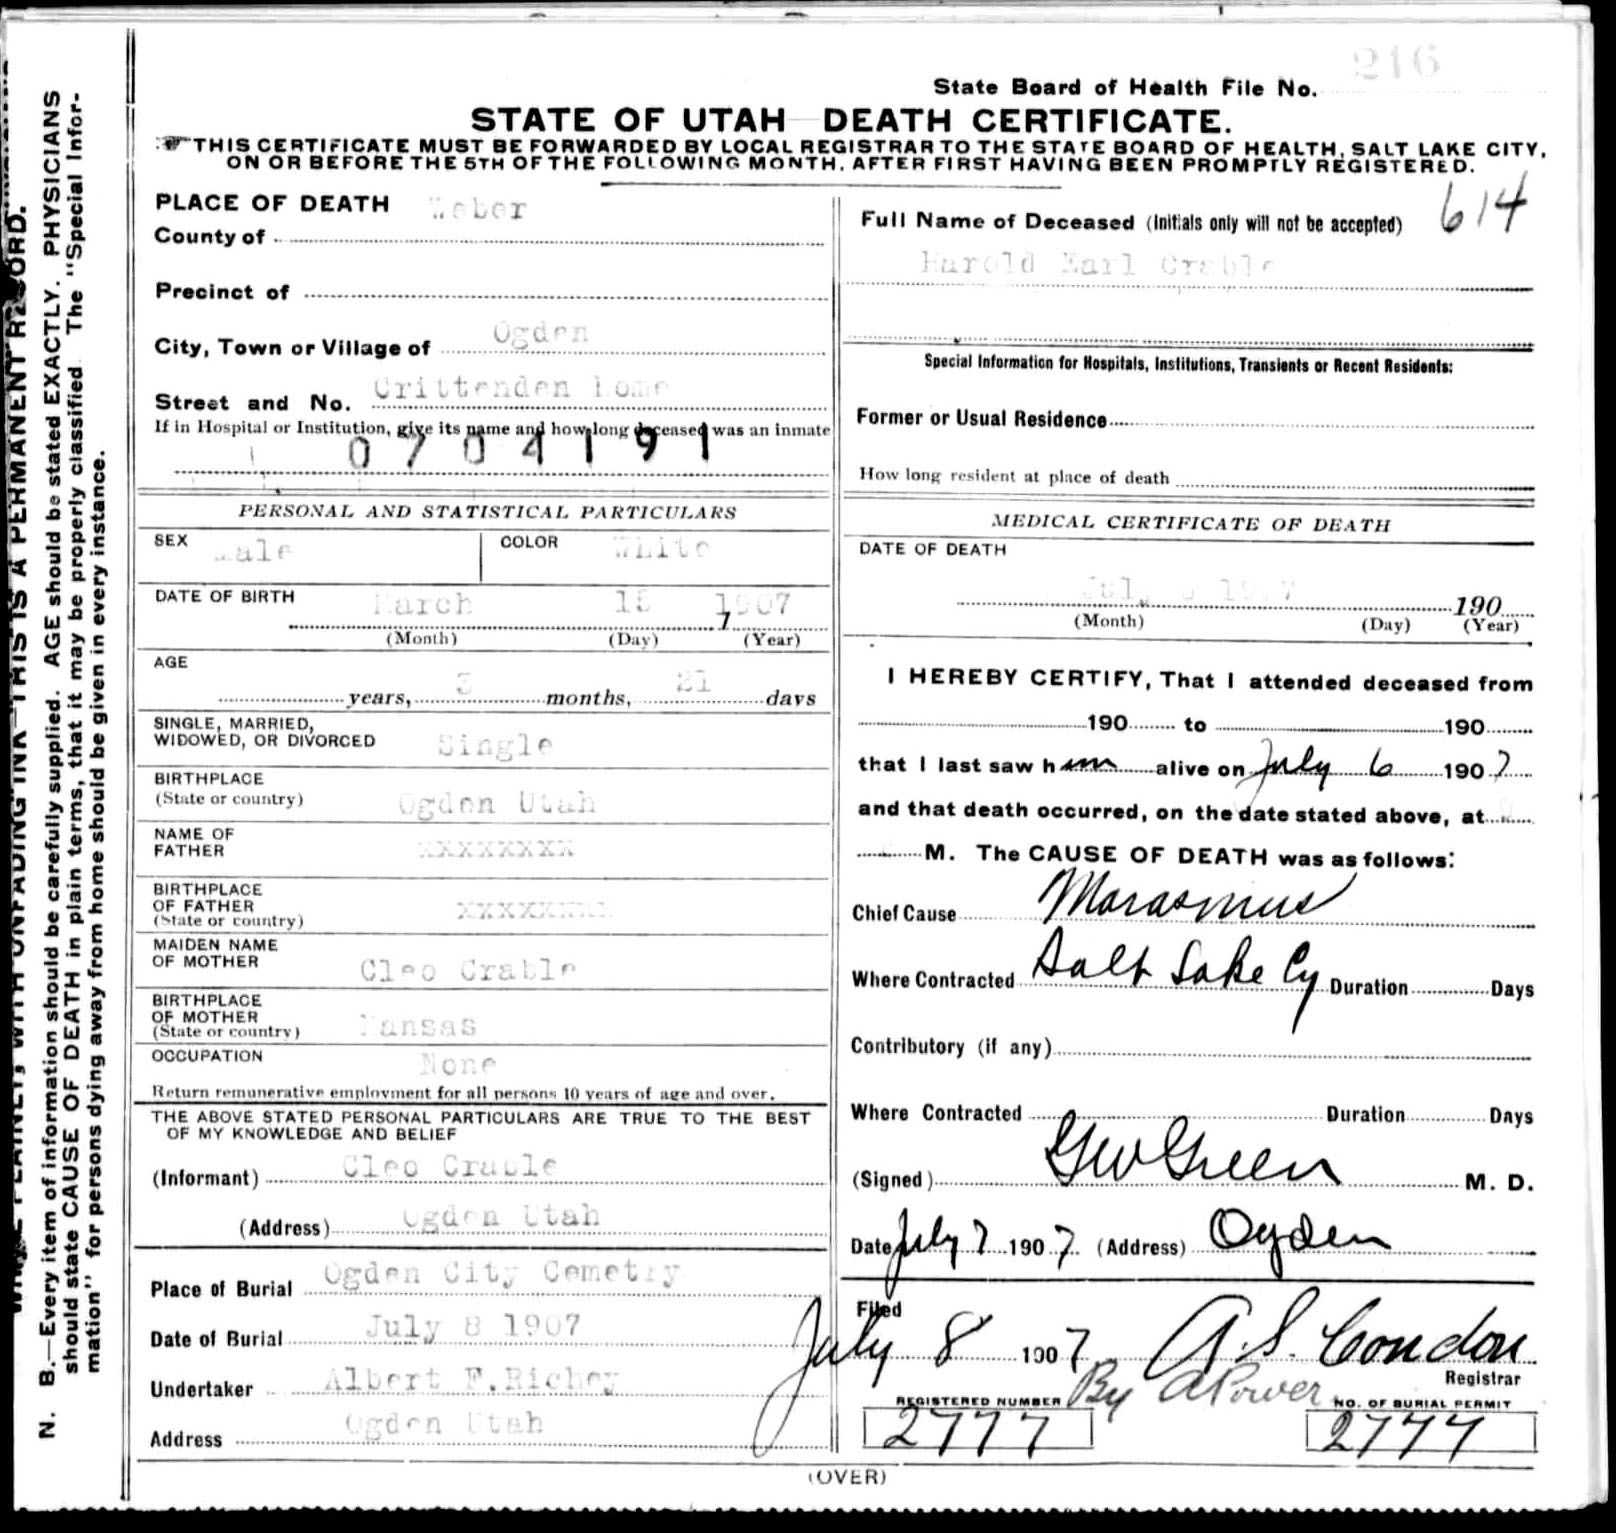 216
State Board of Health File No.
STATE OF UTAH DEATH CERTIFICATE.
THIS CERTIFICATE MUST BE FORWARDED BY LOCAL REGISTRAR TO THE STATE BOARD OF HEALTH, SALT LAKE CITY,
ON OR BEFORE THE 5TH OF THE FOLLOWING MONTH, AFTER FIRST HAVING BEEN PROMPTLY REGISTERED.
PLACE OF DEATH
County of Weber
Precinct of
City, Town or Village of Ogden
Street and No. Crittenden Home
If in Hospital or Institution, give its name and how long deceased was an inmate
0704191
PERSONAL AND STATISTICAL PARTICULARS
SEX Male COLOR White
DATE OF BIRTH March 15 1907
(Month) (Day) (Year)
AGE
years, 3 months, 21 days
SINGLE, MARRIED,
WIDOWED, OR DIVORCED Single
BIRTHPLACE
(State or country) Ogden Utah
NAME OF
FATHER XXXXXXXX
BIRTHPLACE
OF FATHER XXXXXXXX
(State or country)
MAIDEN NAME
OF MOTHER Cleo Crable
BIRTHPLACE
OF MOTHER Kansas
(State or country)
OCCUPATION None
Return remunerative employment for all persons 10 years of age and over.
THE ABOVE STATED PERSONAL PARTICULARS ARE TRUE TO THE BEST
OF MY KNOWLEDGE AND BELIEF
(Informant) Cleo Crable
(Address) Ogden Utah
Place of Burial Ogden City Cemetry
Date of Burial July 8 1907
Undertaker Albert F.Richey
Address Ogden Utah
614
Full Name of Deceased (Initials only will not be accepted)
Harold Earl Crable
Special Information for Hospitals, Institutions, Transients or Recent Residents:
Former or Usual Residence
How long resident at place of death
MEDICAL CERTIFICATE OF DEATH
DATE OF DEATH
July 6 1907 190
(Month) (Day) (Year)
I HEREBY CERTIFY, That I attended deceased from
190 to 190
that I last saw him alive on July 6 1907
and that death occurred, on the date stated above, at
M. The CAUSE OF DEATH was as follows:
Chief Cause Marasmus
Where Contracted Salt Lake Cy Duration Days
Contributory (if any)
Where Contracted Duration Days
(Signed) GW Green M. D.
Date July 7 1907. (Address) Ogden
Filed
July 8 1907 A. S. Condon
Registrar
By A Power
REGISTERED NUMBER NO. OF BURIAL PERMIT
2777 2777
(OVER)
N. B.—Every item of information should be carefully supplied. AGE should be stated EXACTLY. PHYSICIANS
should state CAUSE OF DEATH in plain terms, that it may be properly classified. The "Special Infor-
mation" for persons dying away from home should be given in every instance.
WITH UNFADING INK—THIS IS A PERMANENT RECORD.